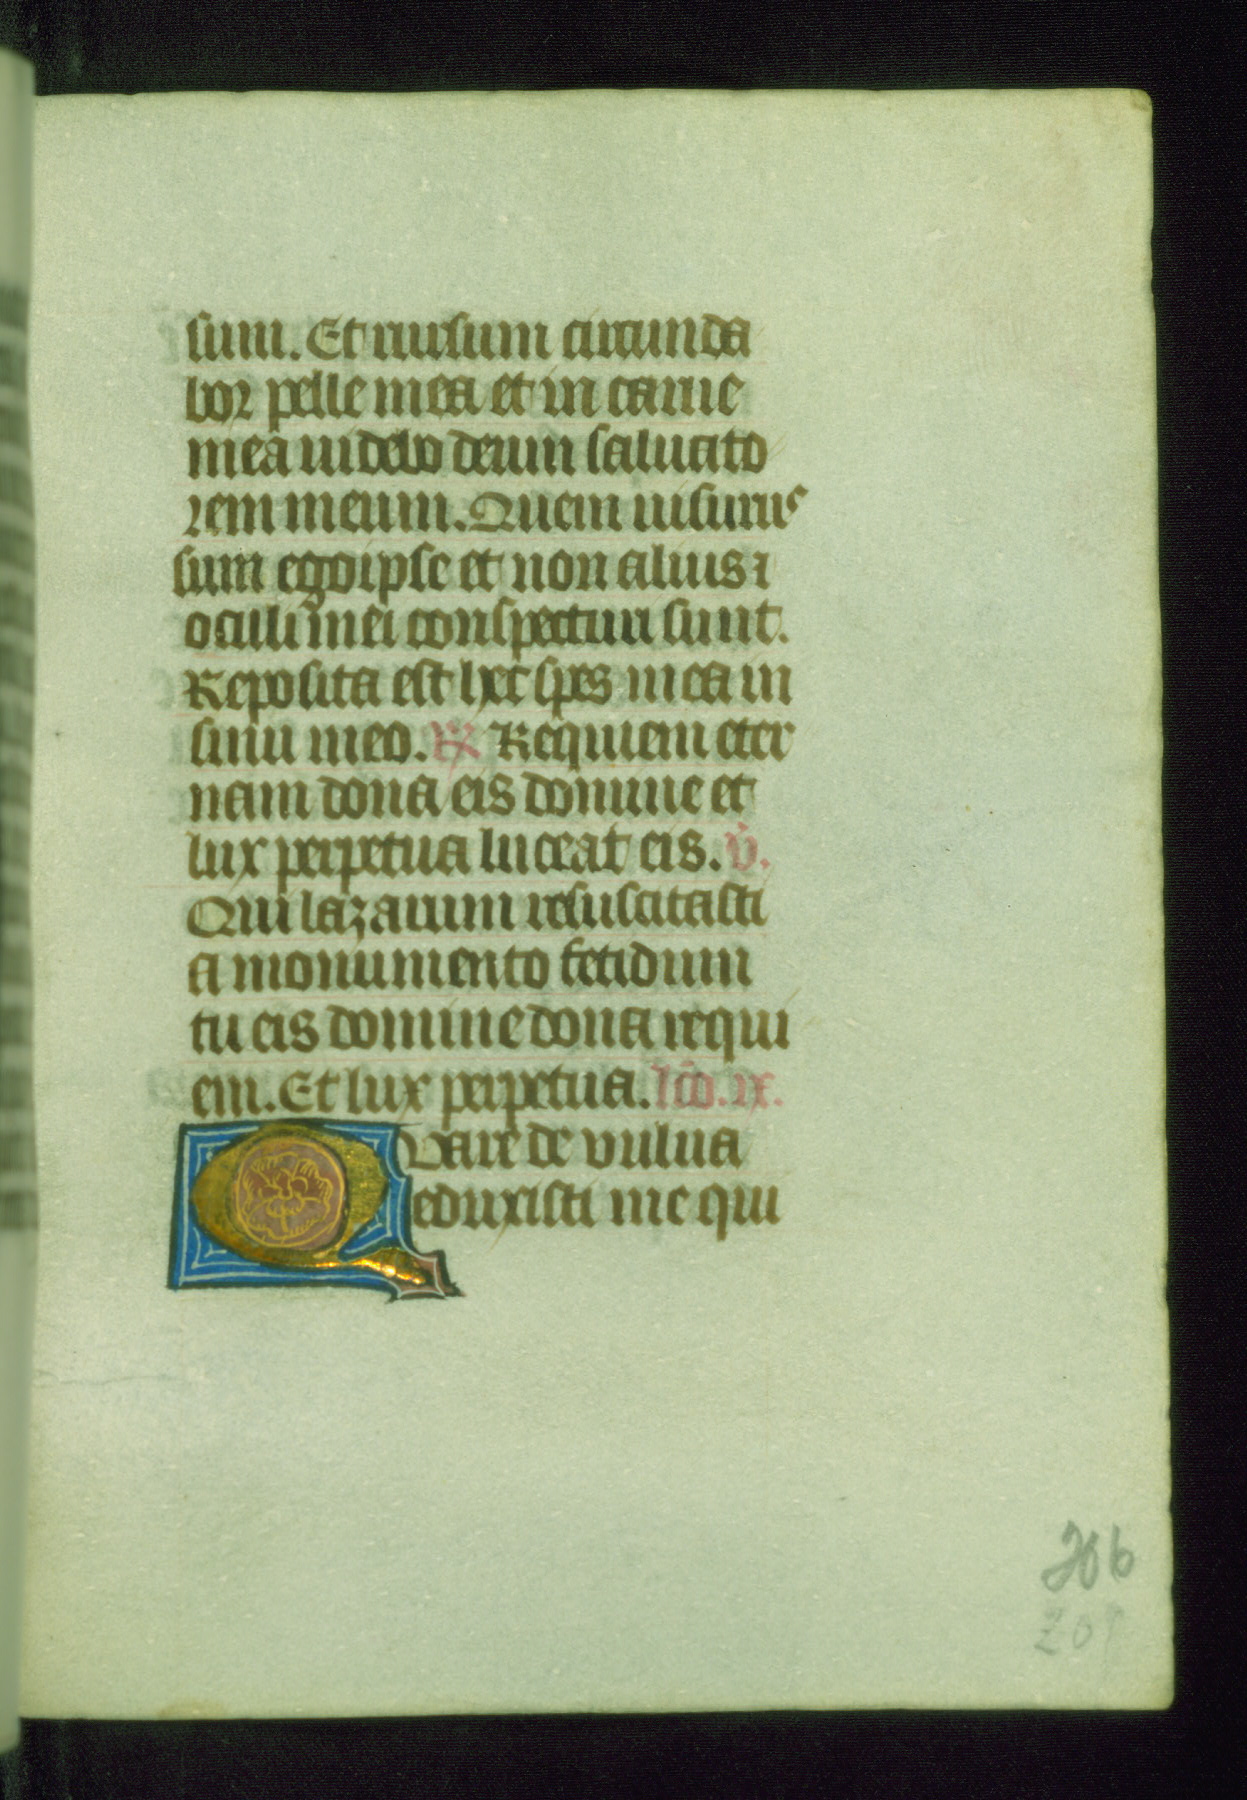 sum. Et rursum circunda
bor pelle mea et in carne
mea videbo deum salvato
rem meum. Quem visurus
sum ego ipse et non alius ⁊
oculi mei conspecturi sunt.
Reposita est hec spes mea in
sinu meo. R̸ Requiem eter
nam dona eis domine et
lux perpetua luceat eis. v̇.
Qui lazarum resuscitasti
a monumento fetidum
tu eis domine dona requi
em. Et lux perpetua. lc̄o. ix.
Quare de vulva
eduxisti me qui
206